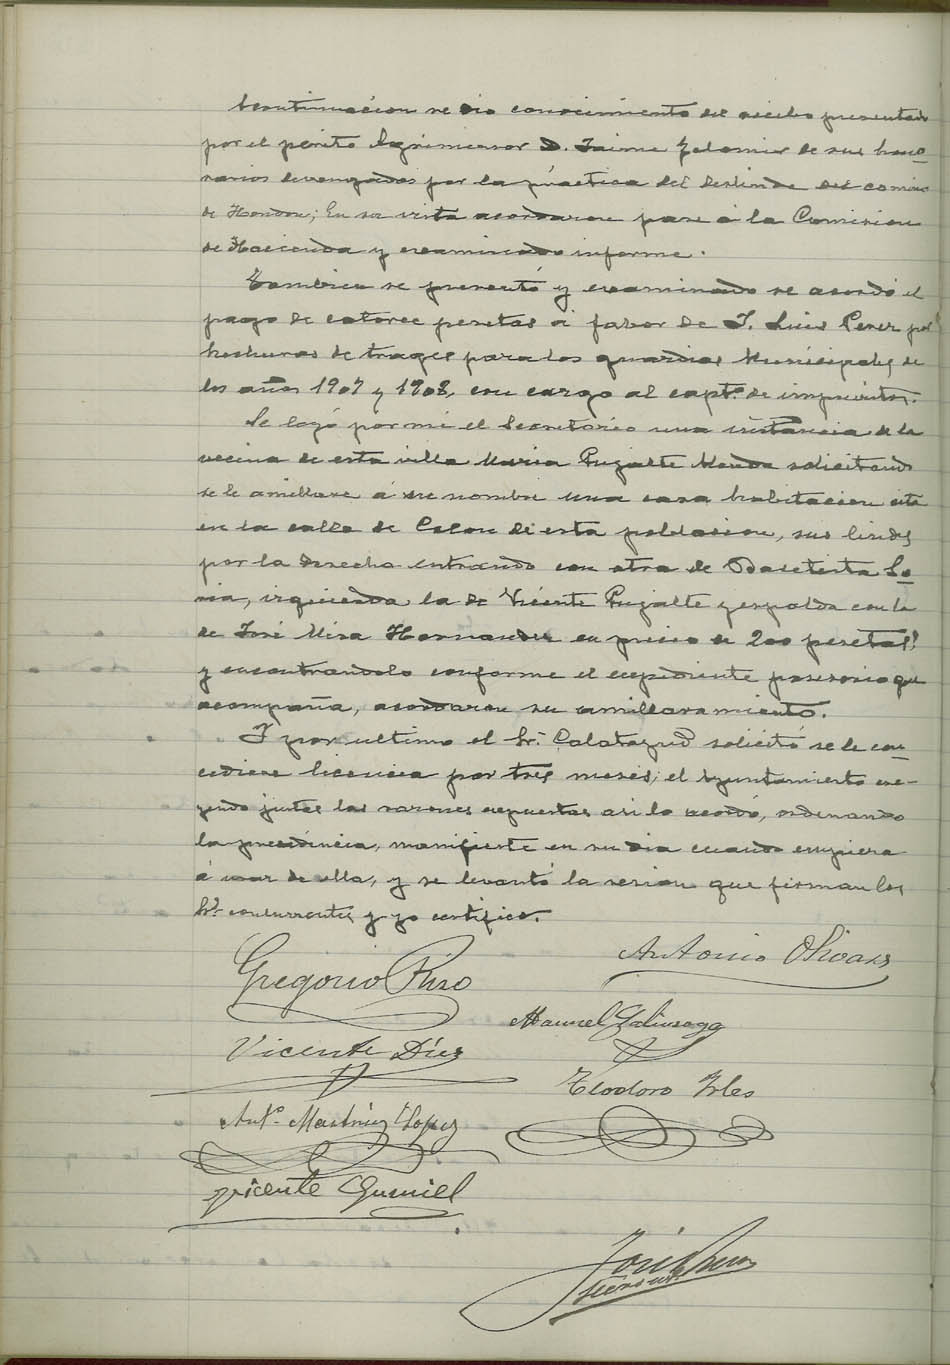 Acontinuacion se dio conocimiento del recibo presentado
por el perito Agrimensor D. Jaime de sus hono-
rarios devengados por la práctica del deslinde del camino
de Hondon; En su vista acordaron pase á la Comision
de Hacienda y examinado informe.
Tambien se presentó y examinado se acordó el
pago de catorce pesetas á fabor de D. Luis Perez por
hechuras de trages para los guardias Municipales de
los años 1907 y 1908, con cargo al capt.º de imprevistos.
Se leyó por mi el Secretario una instancia de la
vecina de esta villa Maria Pujalte solicitando
se le amillare á su nombre una casa habitacion sita
en la calle de Colon de esta poblacion, sus lindes
por la derecha entrando con otra de Bautista So-
ria, izquierda la de Vicente Pujalte y espalda con la
de José Mira Hernandez en precio de 200 pesetas
y encontrandolo conforme el expediente posesorio que
acompaña, acordaron su amillaramiento.
Y por ultimo el Sr. Calatayud solicitó se le con-
cediese licencia por tres meses; el Ayuntamiento cre-
yendo justas las razones expuestas asi lo acordó, ordenando
la presidencia, manifieste en su dia cuando empiera
á usar de ella, y se levantó la sesion que firman los
Sres. concurrentes y yo certifico.
Gregorio Rizo
Antonio Olivares
Manuel Galinsoga
Vicente Díez
Teodoro Irles
Ant.º Martínez Lopez
Vicente Gumiel
José
Secretario